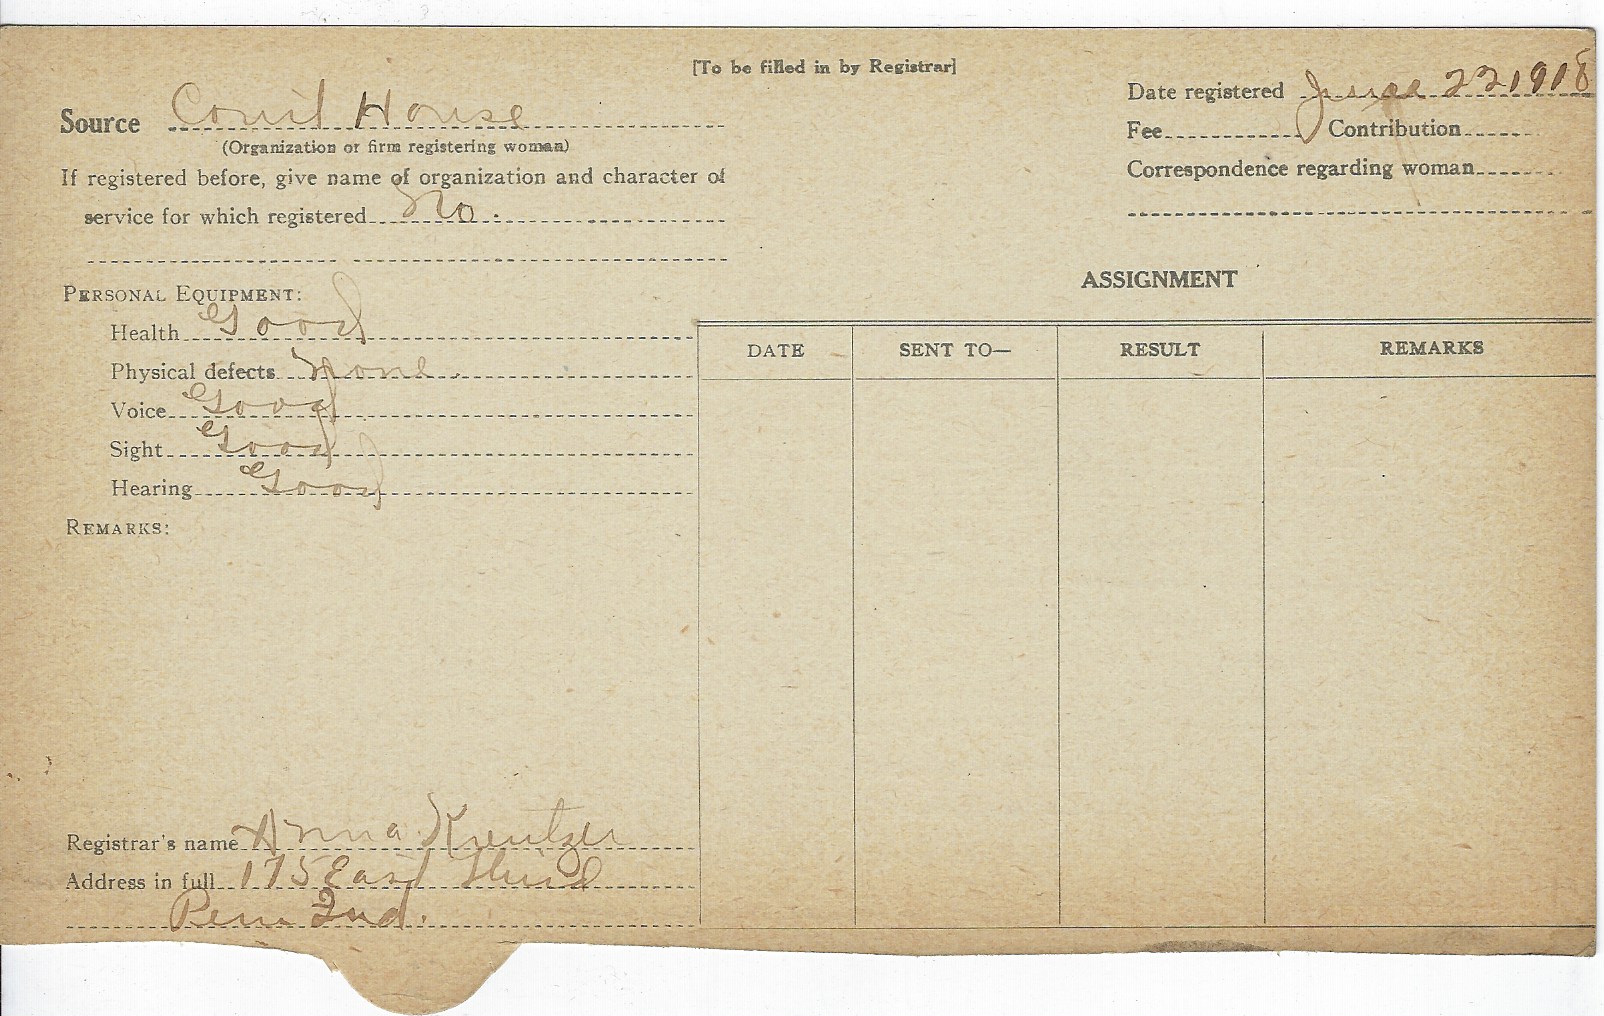 [To be filled in by Registrar]
Source Court House
(Organization or firm registering woman)
If registered before, give name of organization and character of
service for which registered No.
Date registered June 22 1918
Fee Contribution
Correspondence regarding woman
PERSONAL EQUIPMENT:
Health Good
Physical defects None.
Voice Good
Sight Good
Hearing Good
REMARKS:
ASSIGNMENT
DATE SENT TO— RESULT REMARKS
Registrar's name Anna Kreutzer
Address in full 175 East Third
Peru Ind.